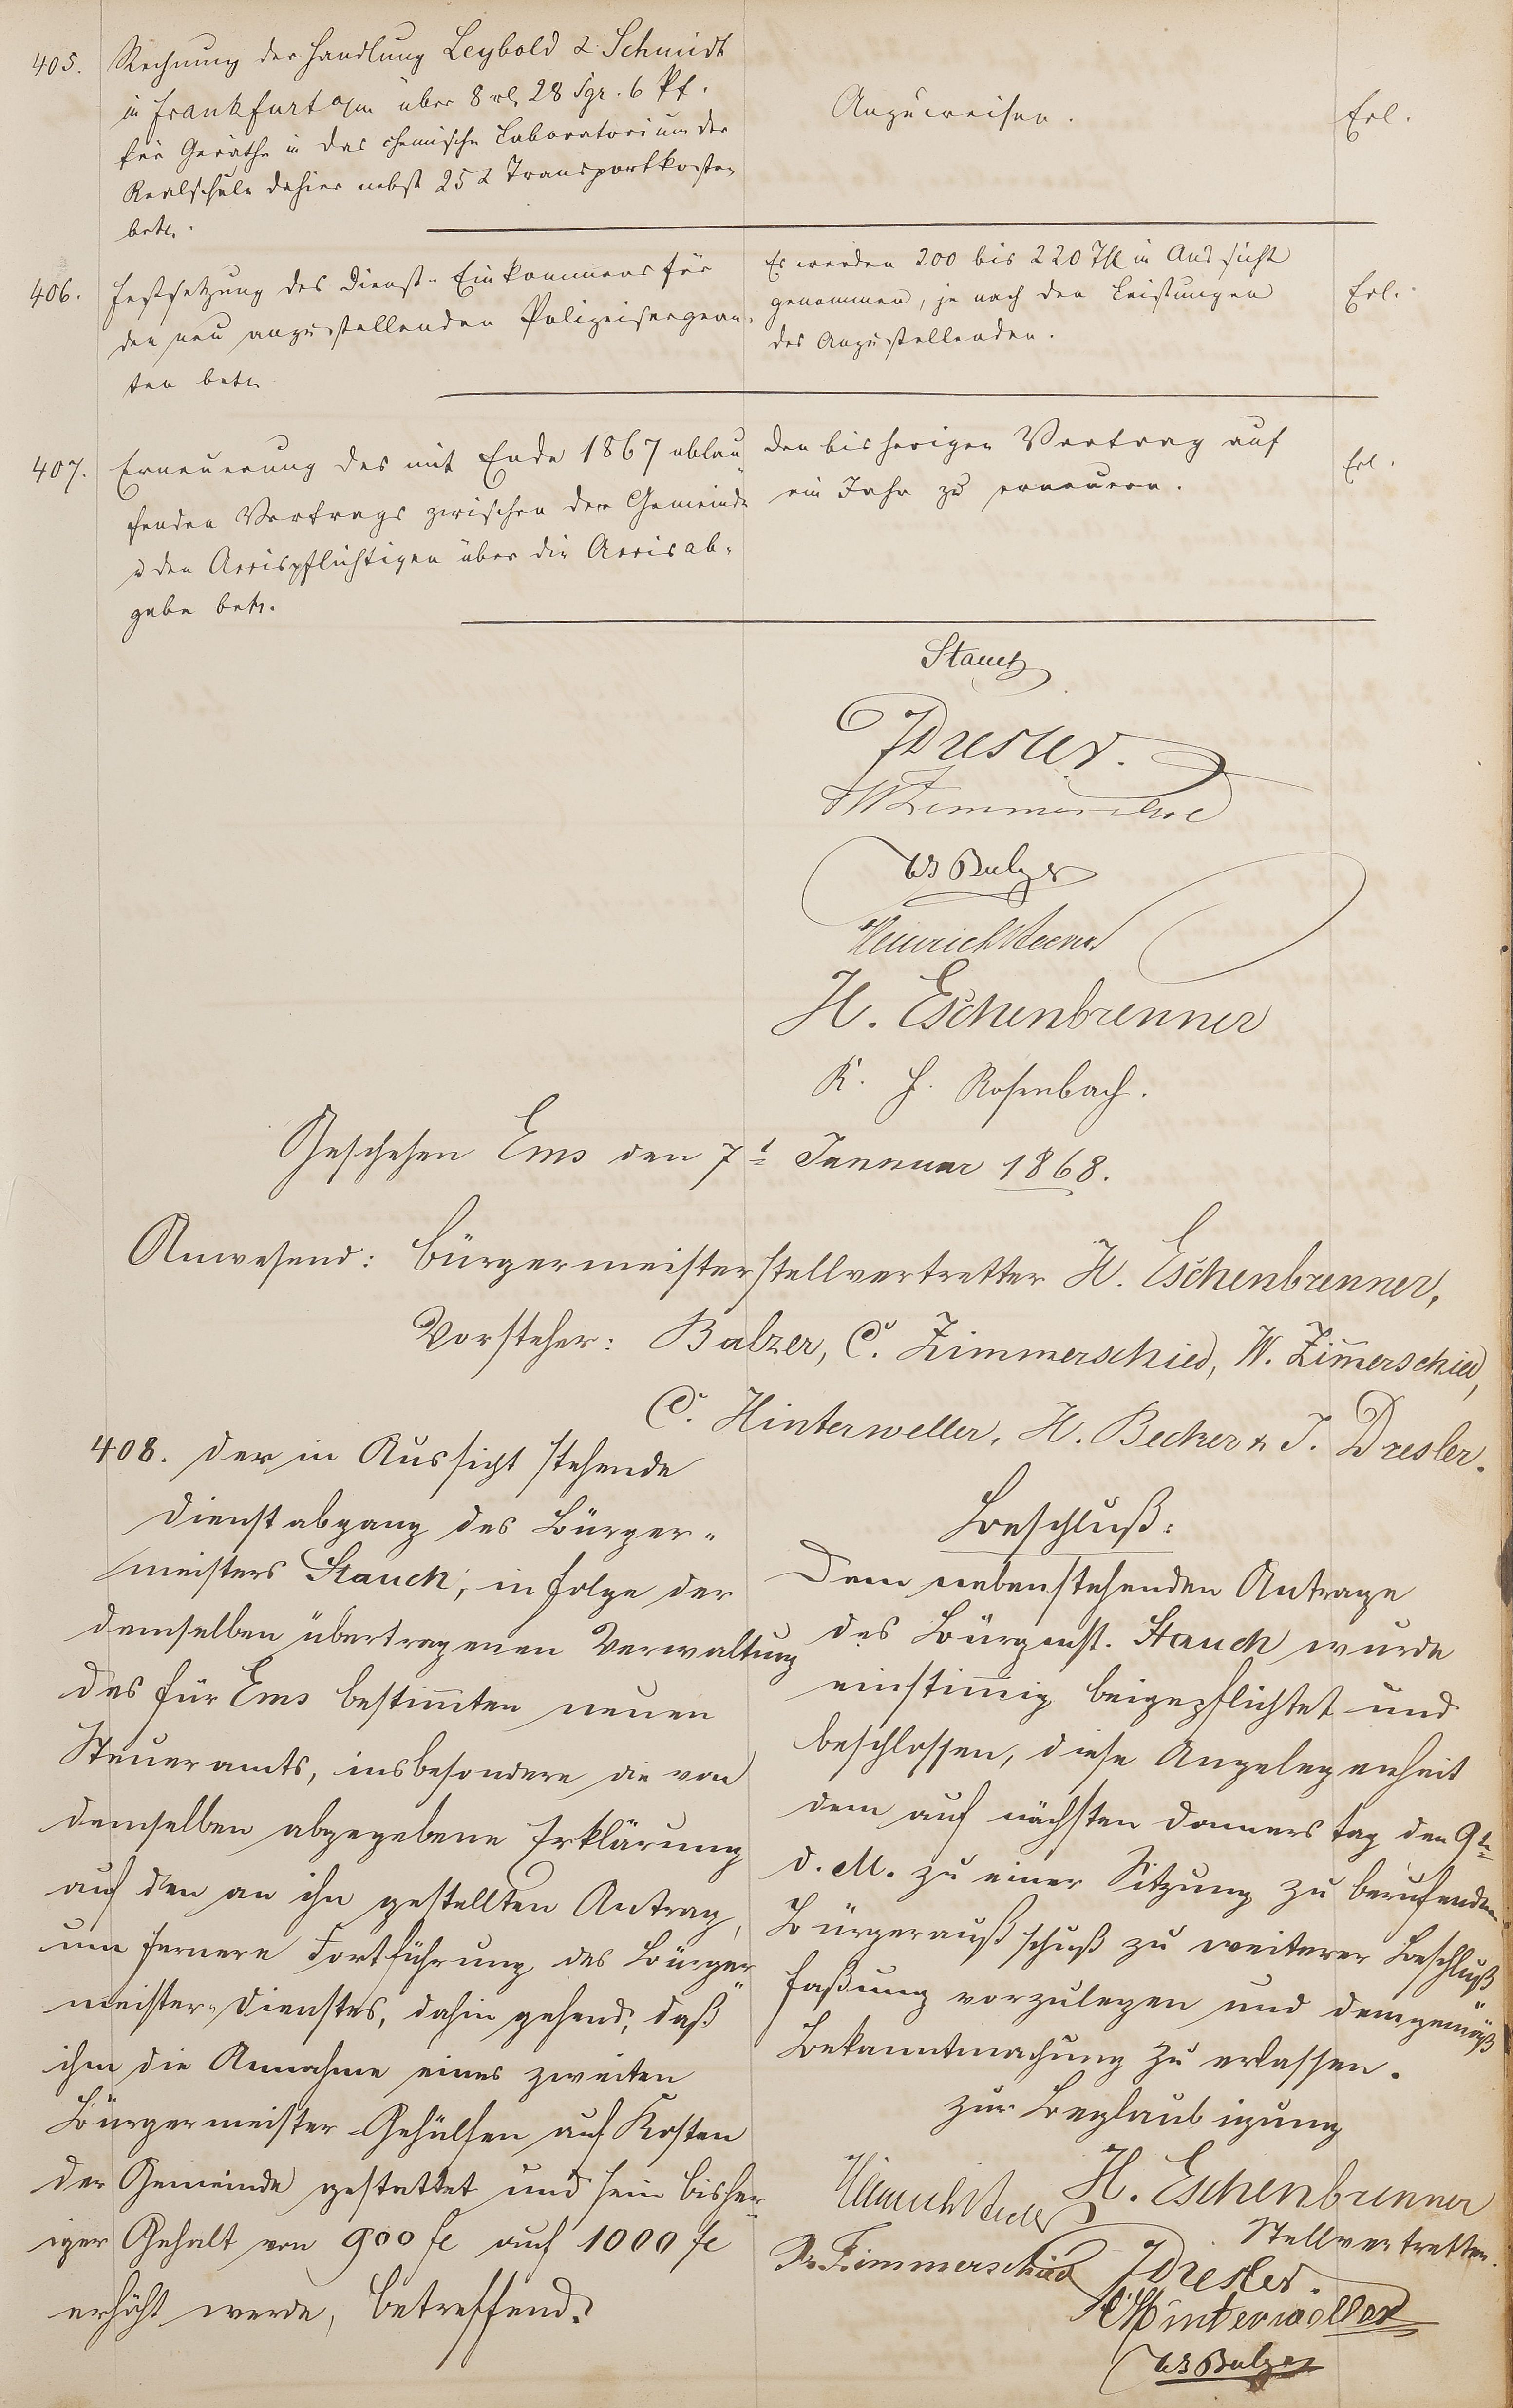 405. Rechnung der Handlung Leybold & Schmidt
in Frankfurt a/m über 8 rl. 28 Sgr. 6 Pf.
für Geräthe in das chemische Laboratorium der
Realschule dahier nebst 25 Transportkosten
betr.
Anzuweisen.
Erl.
406. Festsetzung des Dienst-Einkommens für
den neu anzustellenden Polizeisergean-
ten betr.
Es werden 200 bis 220 Thl in Aussicht
genommen, je nach den Leistungen
des Anzustellenden.
Erl.
407. Erneuerung des mit Ende 1867 ablau-
fenden Vertrags zwischen der Gemeinde
u den Accispflichtigen über die Accisab-
gabe betr.
den bisherigen Vertrag auf
ein Jahr zu erneuern.
Erl.
Stauch
JDresler.
W Zimmerschied
W Balzer
Heinrich Becker
H. Eschenbrenner
K. H. Rosenbach.
Geschehen Ems den 7t Jannuar 1868.
Anwesend: Bürgermeisterstellvertretter H. Eschenbrenner,
Vorsteher: Balzer, C. Zimmerschied, W. Zim̄erschied,
C. Hinterweller, H. Becker & J. Dresler.
408. Der in Aussicht stehende
Dienstabgang des Bürger-
meisters Stauch, in Folge der
demselben übertragenen Verwaltung
des für Ems bestim̄ten neuen
Steueramts, insbesondere die von
demselben abgegebene Erklärung
auf den an ihn gestellten Antrag,
um fernere Fortführung des Bürger-
meister-Dienstes, dahin gehend, daß
ihm die Annahme eines zweiten
Bürgermeister-Gehülfen auf Kosten
der Gemeinde gestattet und sein bisher-
iger Gehalt von 900 fl auf 1000 fl
erhöht werde, betreffend.
Beschluß:
Dem nebenstehenden Antrage
des Bürgmst. Stauch wurde
einstim̄ig beigepflichtet und
beschlossen, diese Angelegenheit
dem auf nächsten Donnerstag den 9te
d. M. zu einer Sitzung zu berufenden
Bürgeraußschuß zu weiterer Beschluß
faßung vorzulegen und demgemäß
Bekanntmachung zu erlassen.
Zur Beglaubigung
Heinrich Becker H. Eschenbrenner
Stellvertretter.
Zimmerschied JDresler.
C Hinterweller
W Balzer